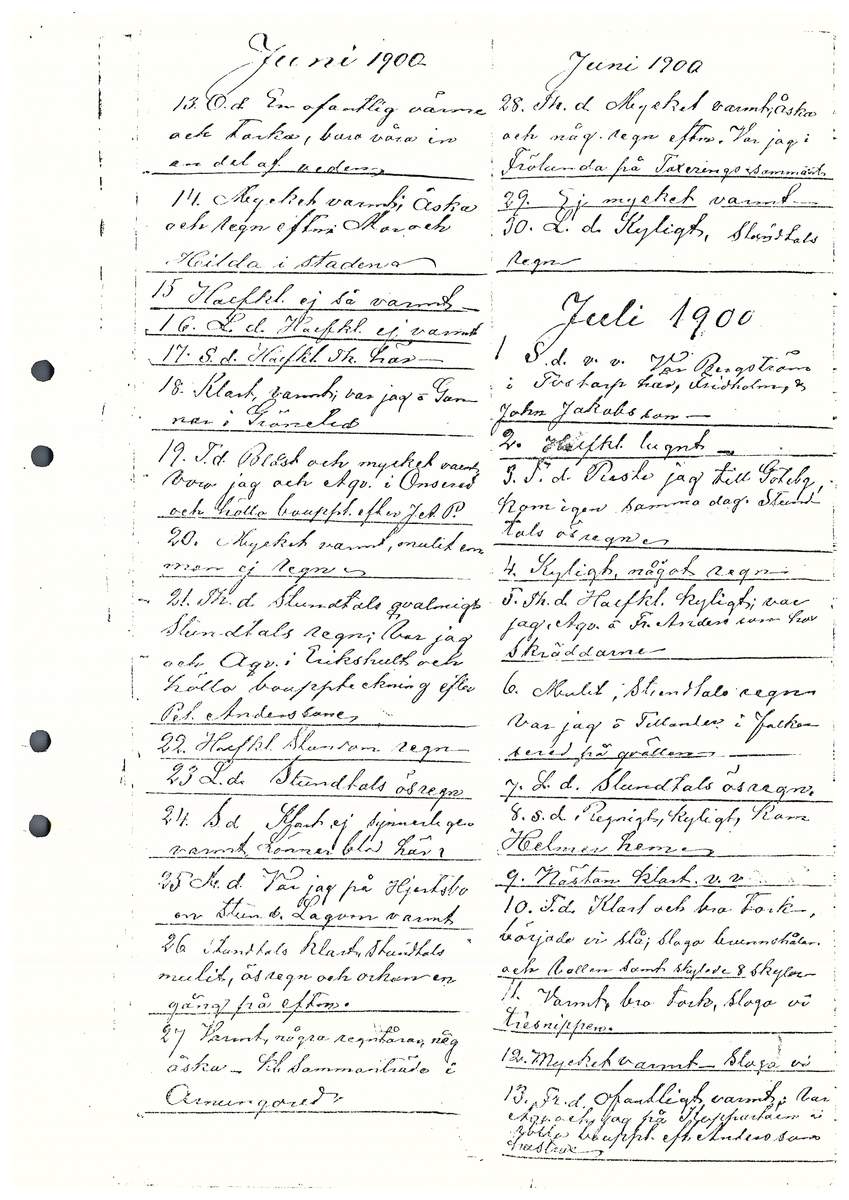 Juni 1900
13. O.d. En ofantlig värme
och torka, bara våra in
en del af veden
14. Mycket varmt; Åska
och regn eftm; Mor och
Hilda i staden
15 Halfkl. ej så varmt
16. L. d. Halfkl. ej varmt
17. S. d. Halfkl. Th. här
18. Klart, varmt; var jag å Gun
nar i Gröneled
19. T.d. Blåst och mycket varmt,
Voro jag och Agv. i Onsered
och höllo bouppt. efter P.
20. Mycket varmt, mulit em
men ej regn
21. Th. d. Stundtals qvalmigt
Stundtals regn; Var jag
och Agv. i Erikshult och
höllo bouppteckning efter
Pet. Anderssons
22. Halfkl. regn
23 L.d. Stundtals ösregn
24. S d Klart ej synnerligen
varmt, här
25 M. d. Var jag på Hjertsbo
en stund. Lagom varmt
26 Stundtals klart, stundtals
mulit, ösregn och orkan en
gång på eftm.
27 Varmt, några regntårar, någ
åska – kl. Sammanträde i
Arnungared
Juni 1900
28. Th. d. Mycket varmt; åska
och någ. regn eftm. Var jag i
Frölunda på Taxerings-sammant
29. Ej mycket varmt
30. L. d. Kyligt, Stundtals
regn
Juli 1900
1 S.d. v. v. Var Bergström
i Tostarp här, Fridholm, &
John Jakobsson
2. Halfkl lugnt
3. T. d. Reste jag till Götebg,
kom igen samma dag. Stund
tals ösregn
4. Kyligt, något regn
5. Th. d. Halfkl. kyligt; var
jag, Agv. å Fr. Andersson hos
skräddarne
6. Mulit, Stundtals regn
var jag å Tillander i Falken
sered på qvällen
7. L. d. Stundtals ösregn.
8. s. d. Regnigt, kyligt, kom
Helmer hem
9. Nästan klart. v. v
10. T.d. Klart och bra tork,
började vi slå; sloge brunnshålan
och vallen samt skylede 8 skylar
11. Varmt, bra tork, sloge vi
tresnippen.
12. Mycket varmt – Sloge vi
13. Fr. d. ofantligt varmt; Var
Agv. och jag på i
höllo bouppt. eft. Andersson
hustru